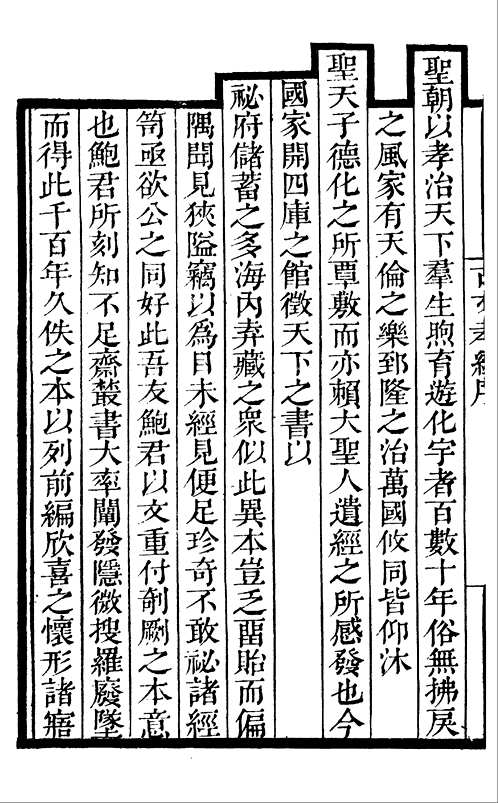 古文孝經序
聖朝以孝治天下羣生煦育遊化宇者百數十年俗無拂戾
之風家有天倫之樂郅隆之治萬國攸同皆仰沐
聖天子德化之所覃敷而亦賴大聖人遺經之所感發也今
國家開四庫之館徵天下之書以
祕府儲蓄之多海內弆藏之衆似此異本豈乏畱貽而偏
隅聞見狹隘竊以爲目未經見便足珍奇不敢祕諸經
笥亟欲公之同好此吾友鮑君以文重付剞劂之本意
也鮑君所刻知不足齋叢書大率闡發隱微搜羅廢墜
而得此千百年久佚之本以列前編欣喜之懷形諸寤